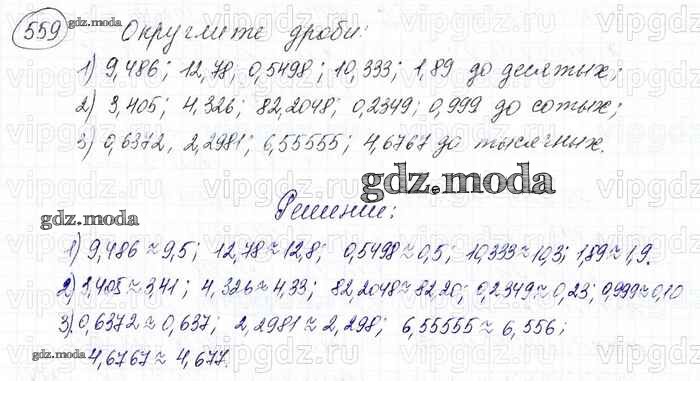 559 gdz.moda Округлите дроби:
1) 9,486; 12,78; 0,5498; 10,333; 1,89 до десятых;
2) 3,405; 4,326; 82,2048; 0,2349; 0,999 до сотых;
3) 0,6372, 2,2981; 6,55555; 4,6767 до тысячных.
gdz.moda
gdz.moda Решение:
1) 9,486 ≈ 9,5; 12,78 ≈ 12,8; 0,5498 ≈ 0,5; 10,333 ≈ 10,3; 1,89 ≈ 1,9.
2) 3,405 ≈ 3,41; 4,326 ≈ 4,33; 82,2048 ≈ 82,20; 0,2349 ≈ 0,23; 0,999 ≈ 0,10
3) 0,6372 ≈ 0,637; 2,2981 ≈ 2,298; 6,55555 ≈ 6,556;
gdz.moda 4,6767 ≈ 4,677.